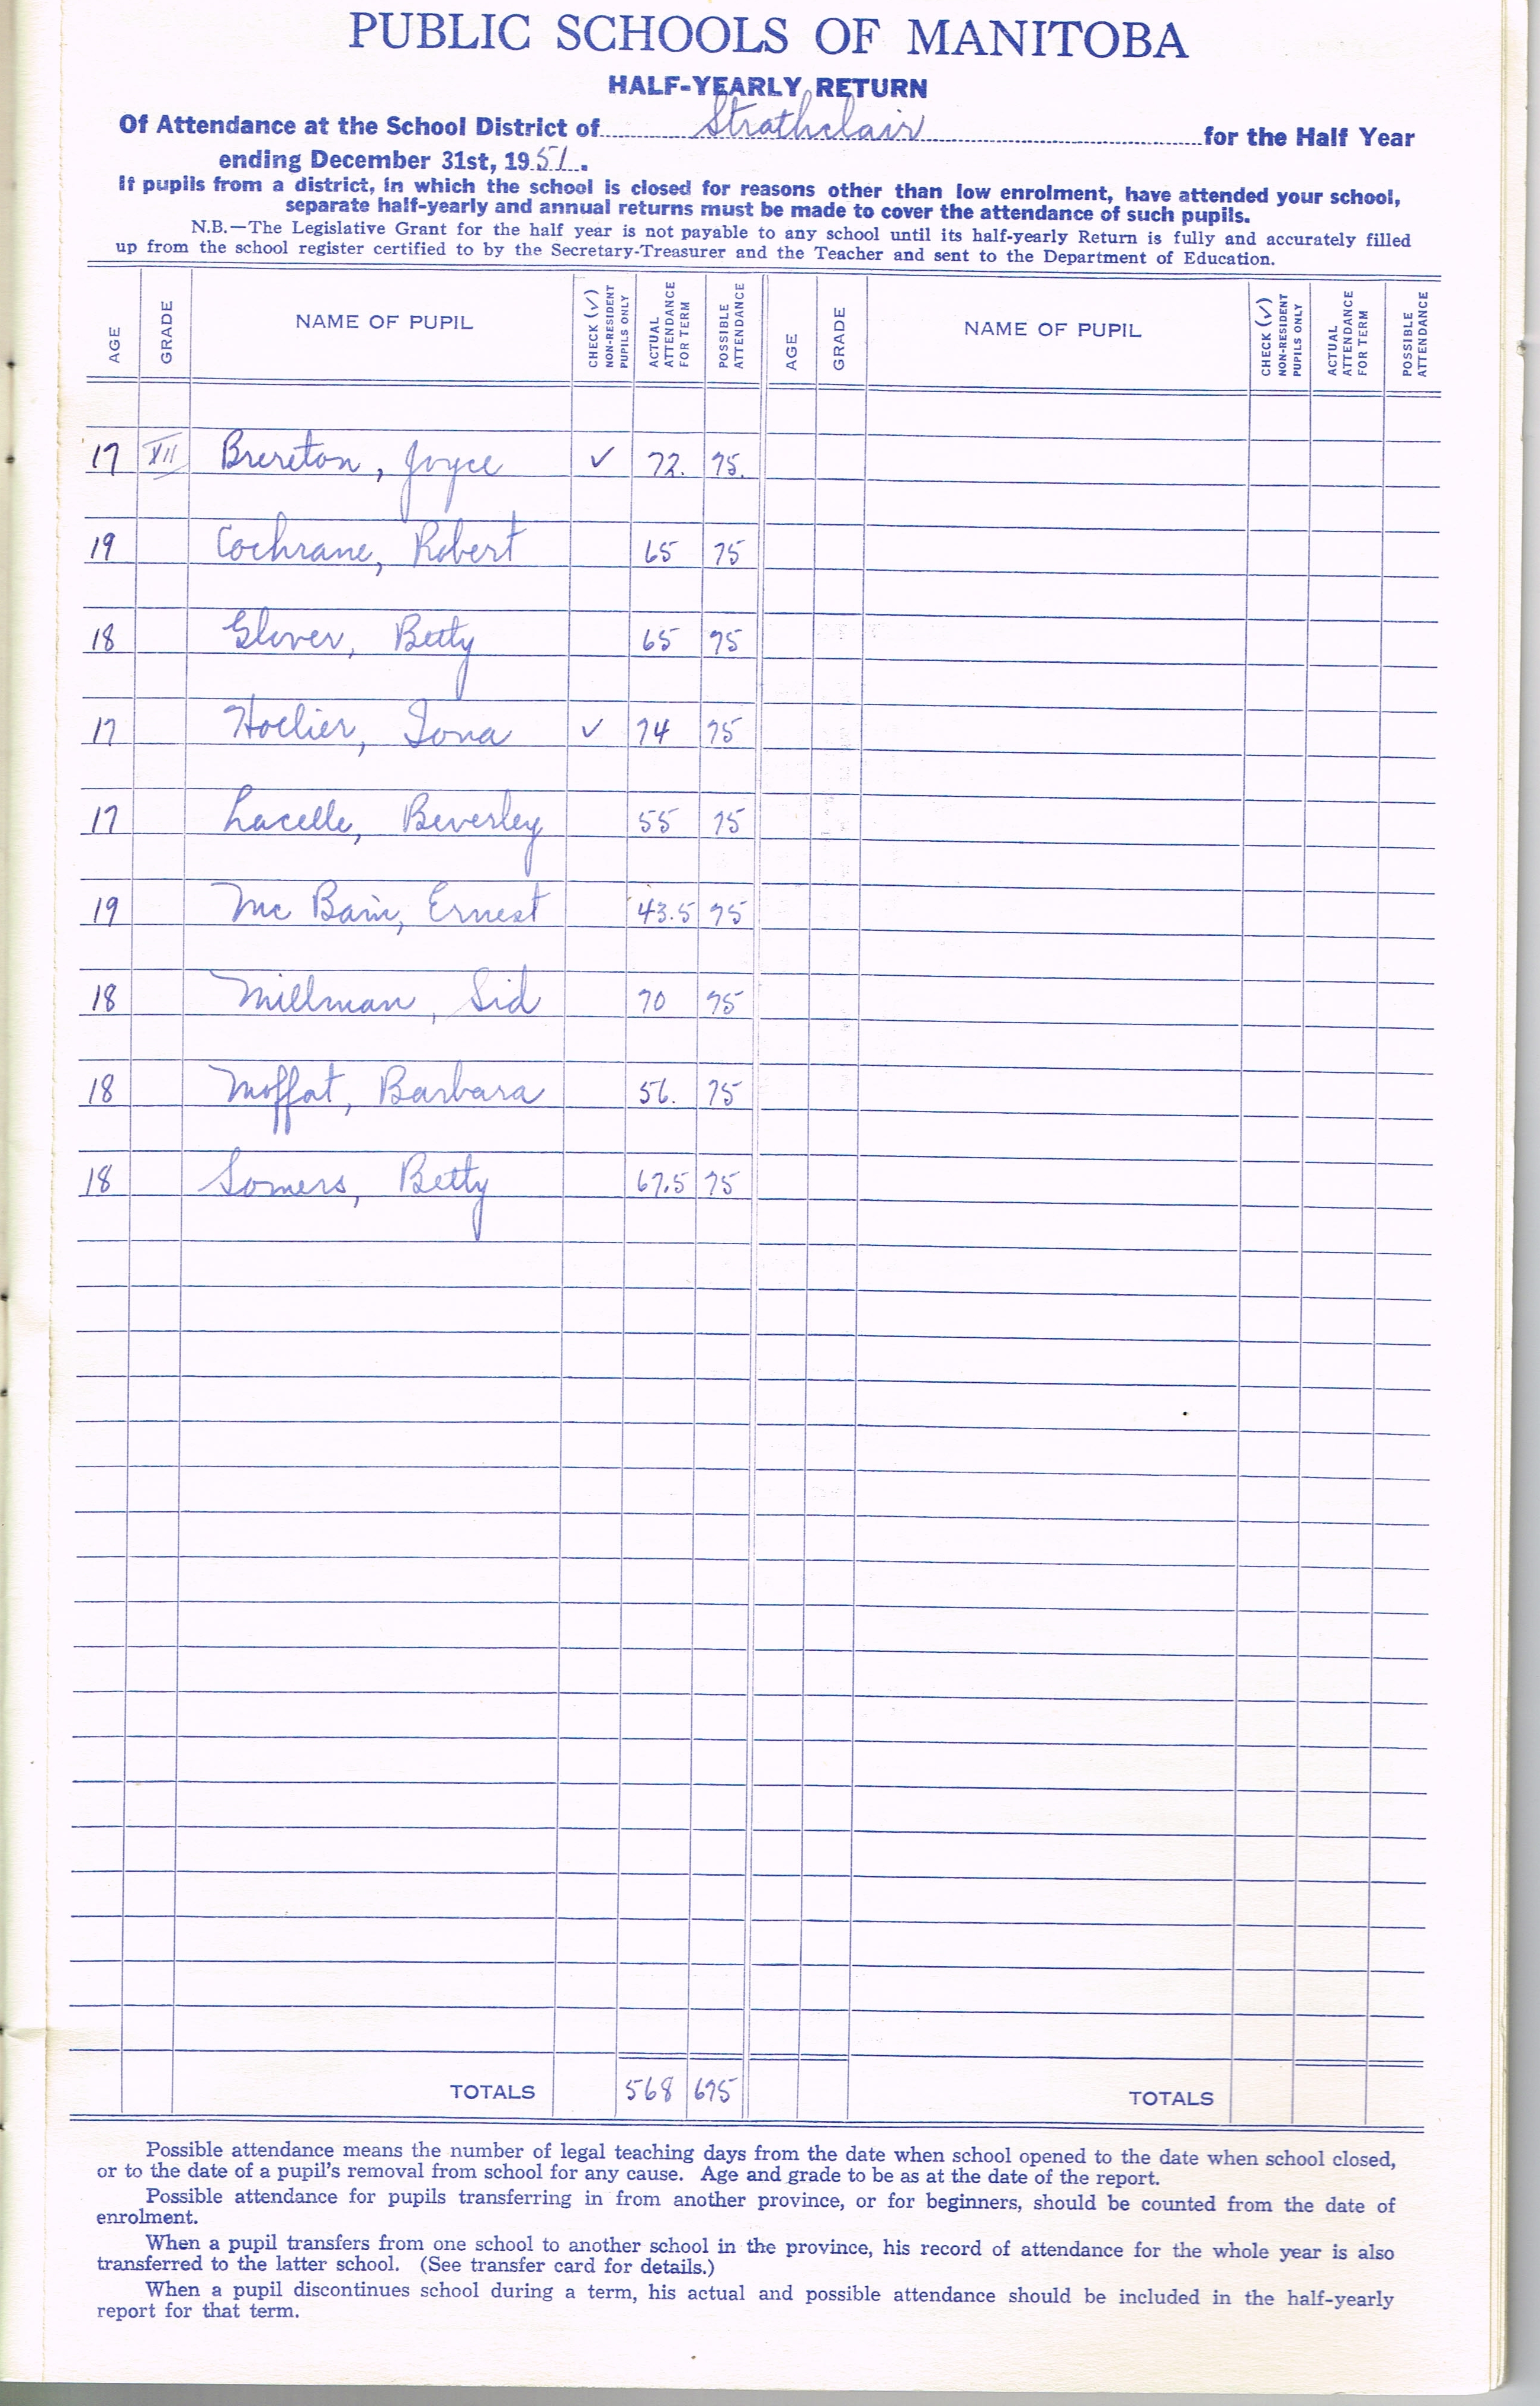 PUBLIC SCHOOLS OF MANITOBA
HALF-YEARLY RETURN
Of Attendance at the School District of Strathclair for the Half Year
ending December 31st, 1951.
If pupils from a district, in which the school is closed for reasons other than low enrolment, have attended your school,
separate half-yearly and annual returns must be made to cover the attendance of such pupils.
N.B.—The Legislative Grant for the half year is not payable to any school until its half-yearly Return is fully and accurately filled
up from the school register certified to by the Secretary-Treasurer and the Teacher and sent to the Department of Education.
AGE GRADE NAME OF PUPIL CHECK (✓) NON-RESIDENT PUPILS ONLY ACTUAL ATTENDANCE FOR TERM POSSIBLE ATTENDANCE AGE GRADE NAME OF PUPIL CHECK (✓) NON-RESIDENT PUPILS ONLY ACTUAL ATTENDANCE FOR TERM POSSIBLE ATTENDANCE
17 XII Brereton, Joyce ✓ 72. 75.
19 Cochrane, Robert 65 75
18 Glover, Betty 65 75
17 Hoelier, Iona ✓ 74 75
17 Lacelle, Beverley 55 75
19 Mc Bain, Ernest 43.5 75
18 Millman, Sid 70 75
18 Moffat, Barbara 56. 75
18 Somers, Betty 67.5 75
TOTALS 568 675 TOTALS
Possible attendance means the number of legal teaching days from the date when school opened to the date when school closed,
or to the date of a pupil's removal from school for any cause. Age and grade to be as at the date of the report.
Possible attendance for pupils transferring in from another province, or for beginners, should be counted from the date of
enrolment.
When a pupil transfers from one school to another school in the province, his record of attendance for the whole year is also
transferred to the latter school. (See transfer card for details.)
When a pupil discontinues school during a term, his actual and possible attendance should be included in the half-yearly
report for that term.